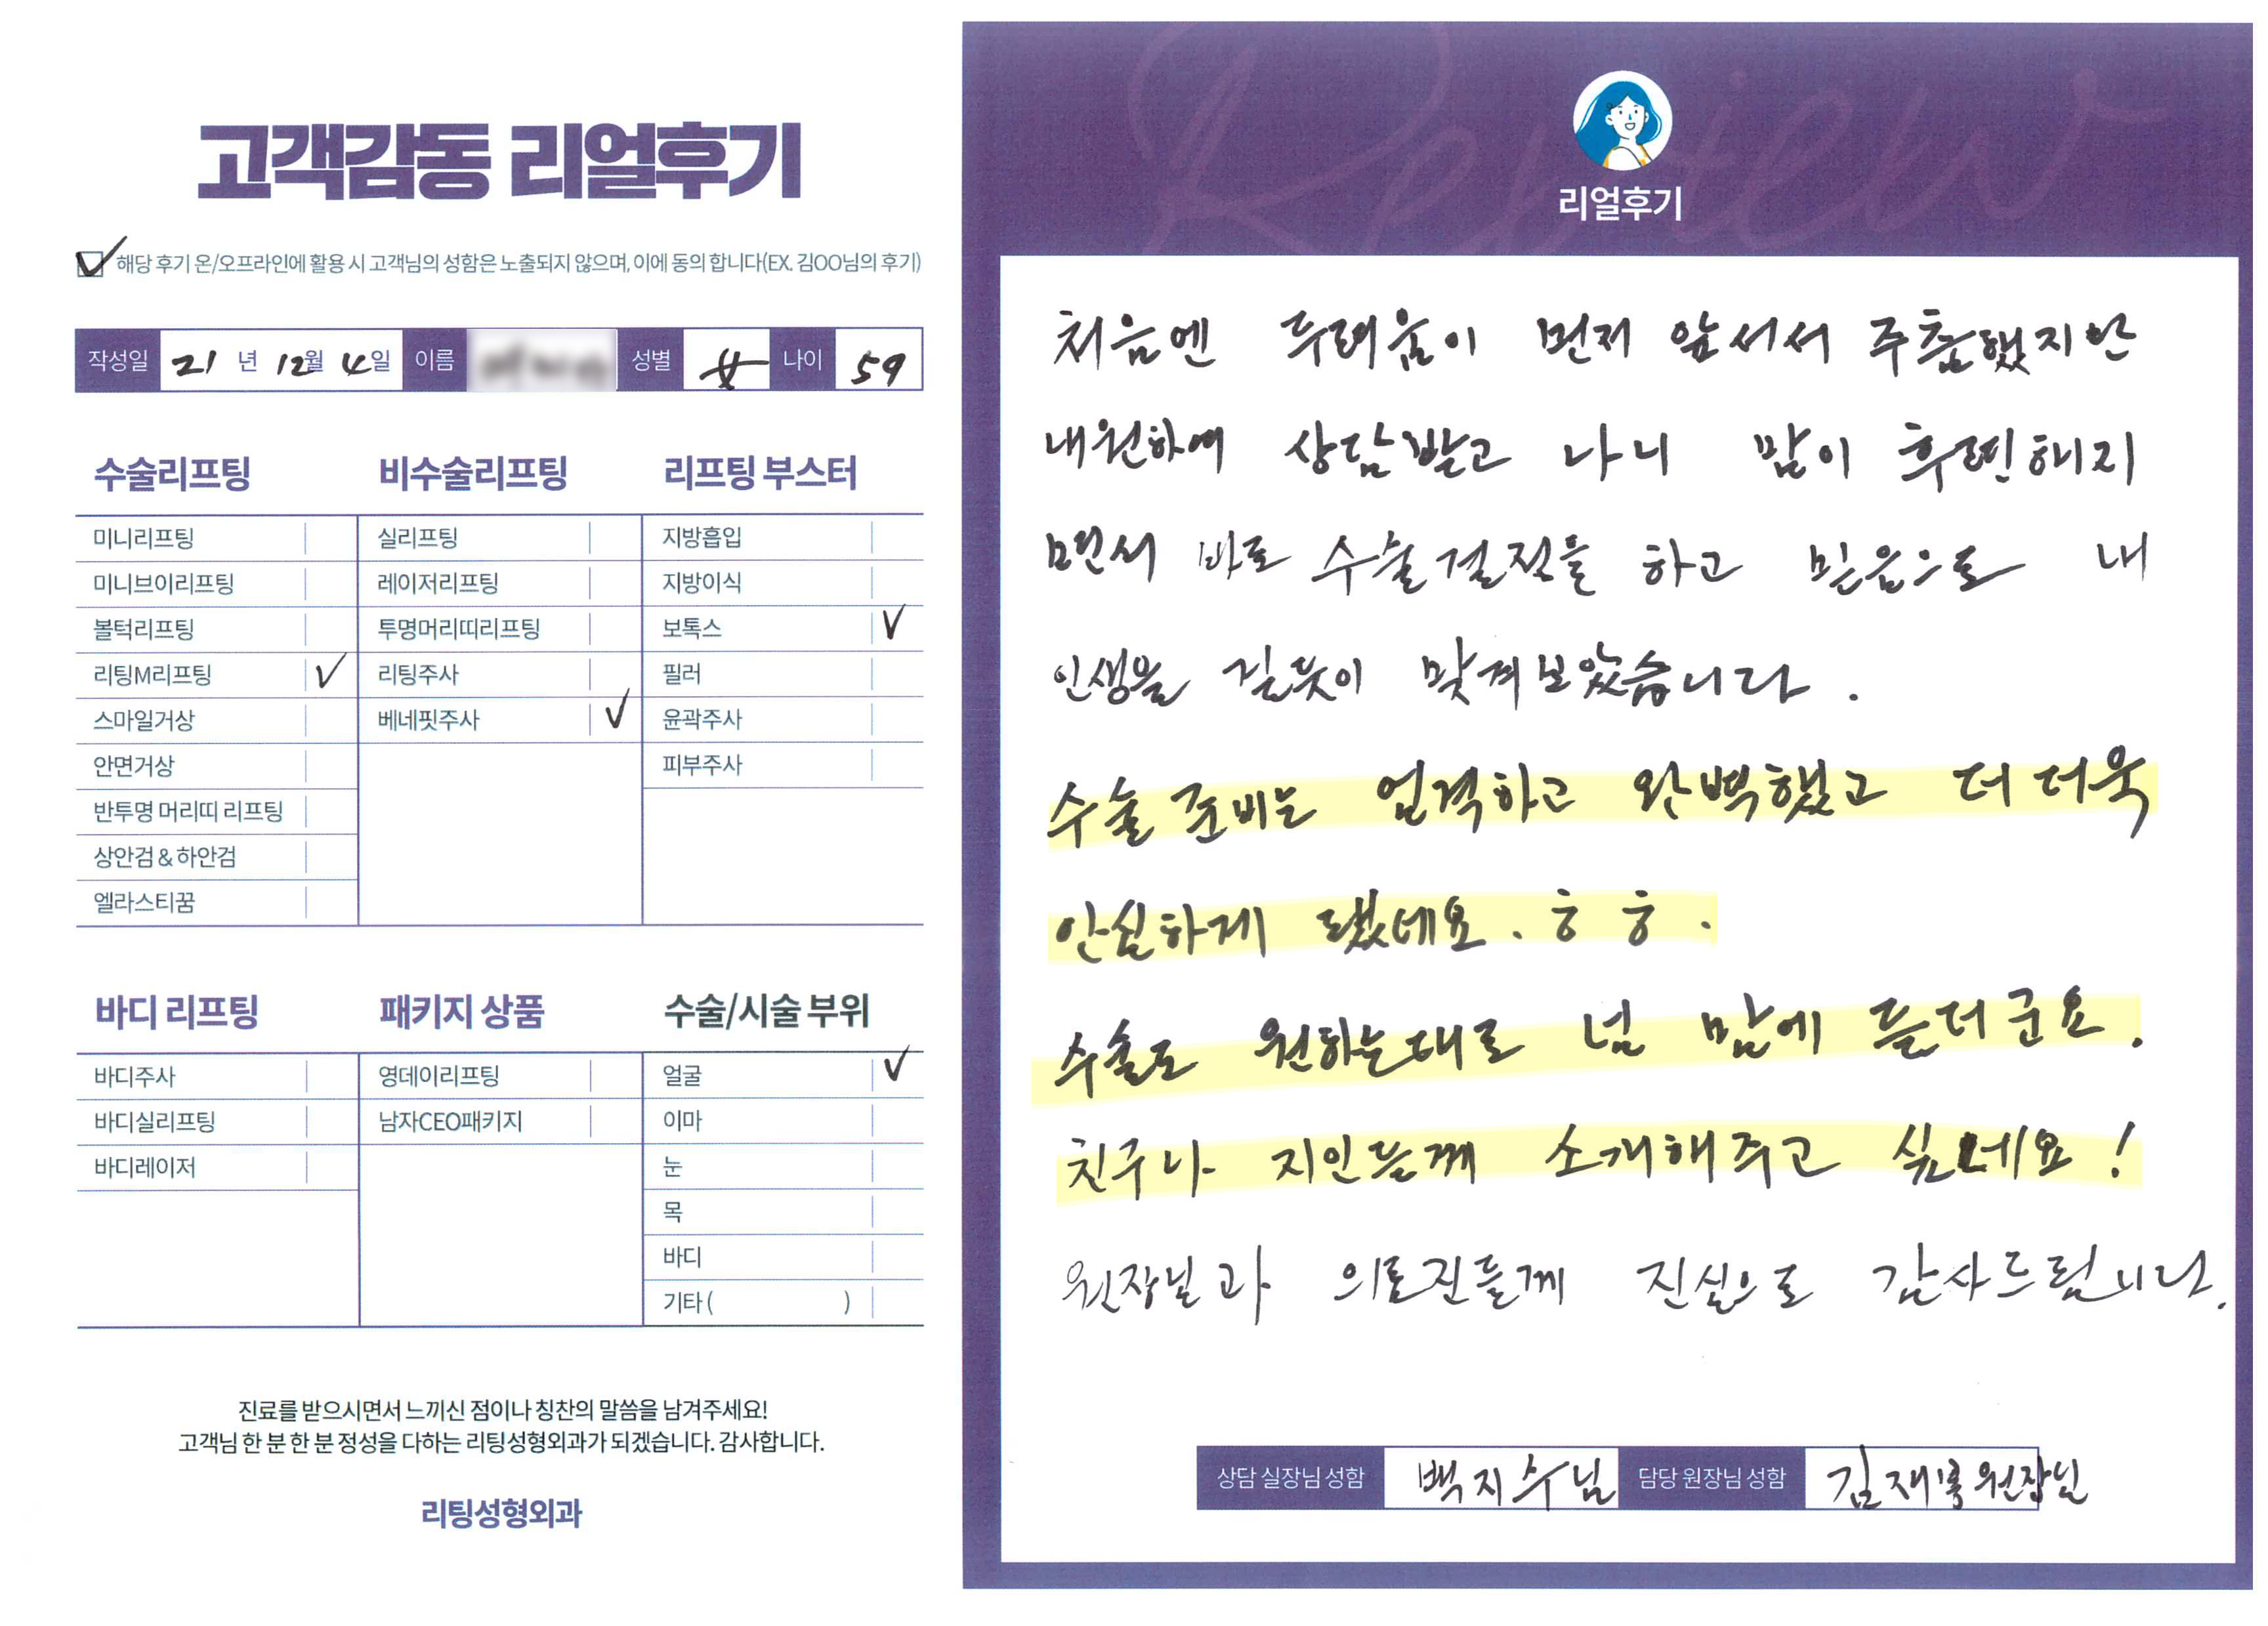 고객감동 리얼후기
해당 후기 온/오프라인에 활용 시 고객님의 성함은 노출되지 않으며, 이에 동의 합니다(EX. 김OO님의 후기)
작성일 21 년 12월 4일 이름 성별 女 나이 59
수술리프팅
미니리프팅
미니브이리프팅
볼턱리프팅
리팅M리프팅 ✓
스마일거상
안면거상
반투명 머리띠 리프팅
상안검 & 하안검
엘라스티꿈
비수술리프팅
실리프팅
레이저리프팅
투명머리띠리프팅
리팅주사
베네핏주사 ✓
리프팅 부스터
지방흡입
지방이식
보톡스 ✓
필러
윤곽주사
피부주사
바디 리프팅
바디주사
바디실리프팅
바디레이저
패키지 상품
영데이리프팅
남자CEO패키지
수술/시술 부위
얼굴 ✓
이마
눈
목
바디
기타 ( )
진료를 받으시면서 느끼신 점이나 칭찬의 말씀을 남겨주세요!
고객님 한 분 한 분 정성을 다하는 리팅성형외과가 되겠습니다. 감사합니다.
리팅성형외과
Review
리얼후기
처음엔 두려움이 먼저 앞서서 주춤했지만
내원하여 상담받고 나니 맘이 후련해지
면서 바로 수술결정을 하고 믿음으로 내
인생을 걸듯이 맞겨보았습니다.
수술준비는 엄격하고 완벽했고 더 더욱
안심하게 됐네요. ㅎ ㅎ.
수술도 원하는대로 넘 맘에 들더군요.
친구나 지인들께 소개해주고 싶네요!
원장님과 의료진들께 진심으로 감사드립니다.
상담 실장님 성함 백지수님 담당 원장님 성함 김재 원장님